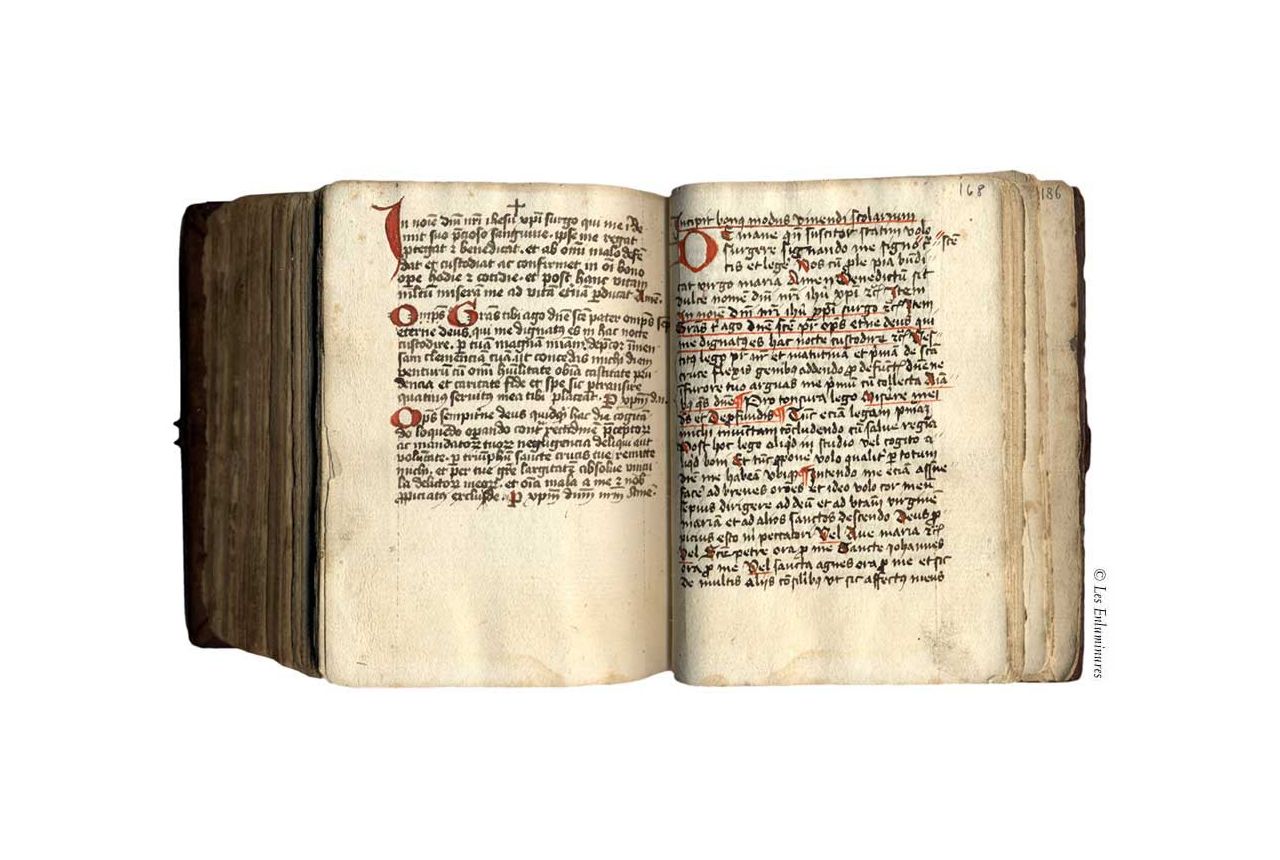 In noīe dm̄ nr̄i ihesū xp̄i surgo qui me re
mit suo p̄cioso sanguine. ipse me regat
ꝓtegat ⁊ benedicat. et ab omī malo defē
dat et custodiat ac confirmet in oī bono
ope hodie ⁊ cotidie. et post hanc vitam
miserū me ad vitā et̄nā ꝑducat Amē.
Omīps Gr̄as tibi ago dn̄e scē pater omīps
eterne deus, qui me dignatꝰ es in hac nocte
custodire. ꝑ tuā magnā mīam. deꝓcor
sam clemenciam tuā. ut concedas michi diem
venturū cū omī hūilitate castitate
dencia et caritate fide et spe sic ꝑtransire
quatinꝰ seruitꝰ mea tibi placeat. ꝑ xp̄m
Om̄ps sempit̄ne deus quidꝗd hac die cogitā
do loquēdo opando contᷓ
ac mandatoꝝ tuoꝝ negligencia deliqui aut
volūtate. ꝑ triumphū sancte crucis tue remitte
michi, et per tue gr̄e largitatē absolue vincu
la delictoꝝ meoꝝ. et oīa mala a me ⁊
exclude. ꝑ xp̄m dn̄m nr̄m Amē.
168
186
Incipit bonꝰ modus viuendi scolarium
De mane qn̄ suscitor statim volo
surgere signando me signo scē
cis et lege Nos cū ꝓle pia bn̄di
cat virgo maria Amen Benedictū sit
dulce nomē dm̄ nr̄i ihū xp̄i ⁊c Item
In noīe dm̄ nr̄i ihū xp̄i surgo ⁊c Item
Gr̄as t̄ ago dn̄e scē pr̄ om̄ps et̄ne deus qui
me dignatꝰ es hac nocte custodire ⁊c
lego pr̄ nr̄ et matutinā et p̄mā de scā
cruce flexis genibꝰ addendo ꝓ defunct̄ dn̄e ne
furore tuo arguas me p̄mū cū collecta
dn̄e Pro tonsura lego Miserere mei
ds̄ et Deprofūdis Tūc eciā legam
michi concludendo cū salue regīa
Post hoc lego aliꝗd in studio vel cogito
liꝗd boni Et tūc ꝓpone volo qualit̄ ꝑ totum
diē me habeā ubiꝗ Intendo me eciā
facē ad breues or̄oēs et ideo volo cor meū
sepius dirigere ad deū et ad btām virginē
mariā et ad alios sanctos dicendo Deus ꝓ
picius esto m̄ peccatori Vel Aue maria ⁊c
Vel Scē petre ora ꝓ me Sancte iohannes
ora ꝓ me Vel sancta agnes ora ꝓ me et sic
de multis aliis ut sic affectꝰ meus
© Les Enluminures